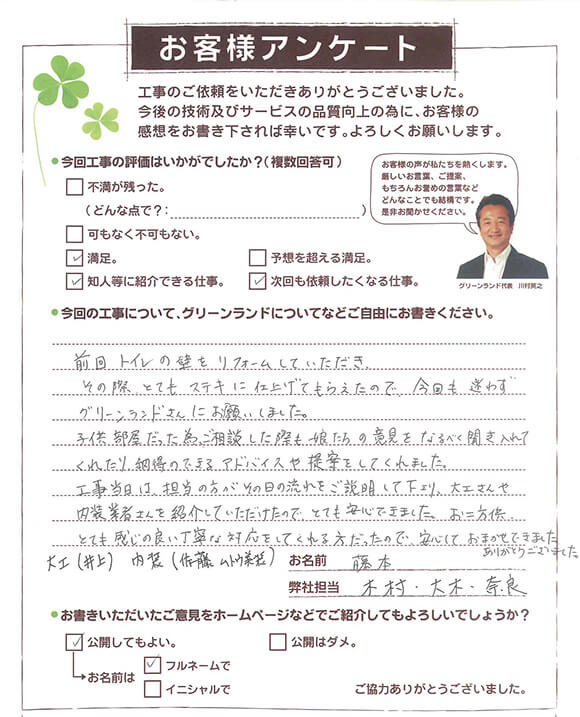 お客様アンケート
工事のご依頼をいただきありがとうございました。
今後の技術及びサービスの品質向上の為に、お客様の
感想をお書き下されば幸いです。よろしくお願いします。
今回工事の評価はいかがでしたか？（複数回答可）
不満が残った。
（どんな点で？：　）
可もなく不可もない。
満足。
予想を超える満足。
知人等に紹介できる仕事。
次回も依頼したくなる仕事。
お客様の声が私たちを熱くします。
厳しいお言葉、ご提案、
もちろんお誉めの言葉など
どんなことでも結構です。
是非お聞かせください。
グリーンランド代表　川村晃之
今回の工事について、グリーンランドについてなどご自由にお書きください。
前回 トイレの壁をリフォームしていただき、
その際、とてもステキに仕上げてもらえたので、今回も迷わず
グリーンランドさんにお願いしました。
子供部屋だった為、ご相談した際も娘たちの意見をなるべく聞き入れて
くれたり、納得のできるアドバイスや提案をしてくれました。
工事当日は、担当の方がその日の流れをご説明して下さり、大工さんや
内装業者さんを紹介していただけたので、とても安心できました。お二方供、
とても感じの良い丁寧な対応をしてくれる方だったので、安心しておまかせできました。
ありがとうございました。
大工（井上）　内装（佐藤
お名前　藤本
弊社担当　木村・大木・奈良
お書きいただいたご意見をホームページなどでご紹介してもよろしいでしょうか？
公開してもよい。
公開はダメ。
お名前は
フルネームで
イニシャルで
ご協力ありがとうございました。